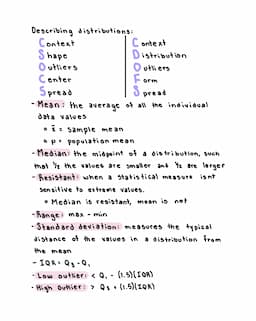 Describing distributions:
Context
Shape
Outliers
Center
Spread
Context
Distribution
Outliers
Form
Spread
- Mean: the average of all the individual
data values
x̄ = sample mean
μ = population mean
- Median: the midpoint of a distribution, such
that 1/2 the values are smaller and 1/2 are larger
- Resistant: when a statistical measure isnt
sensitive to extreme values.
Median is resistant, mean is not
- Range: max - min
- Standard deviation: measures the typical
distance of the values in a distribution from
the mean
- IQR = Q₃ - Q₁
- Low outlier: < Q₁ - (1.5)(IQR)
- High outlier: > Q₃ + (1.5)(IQR)